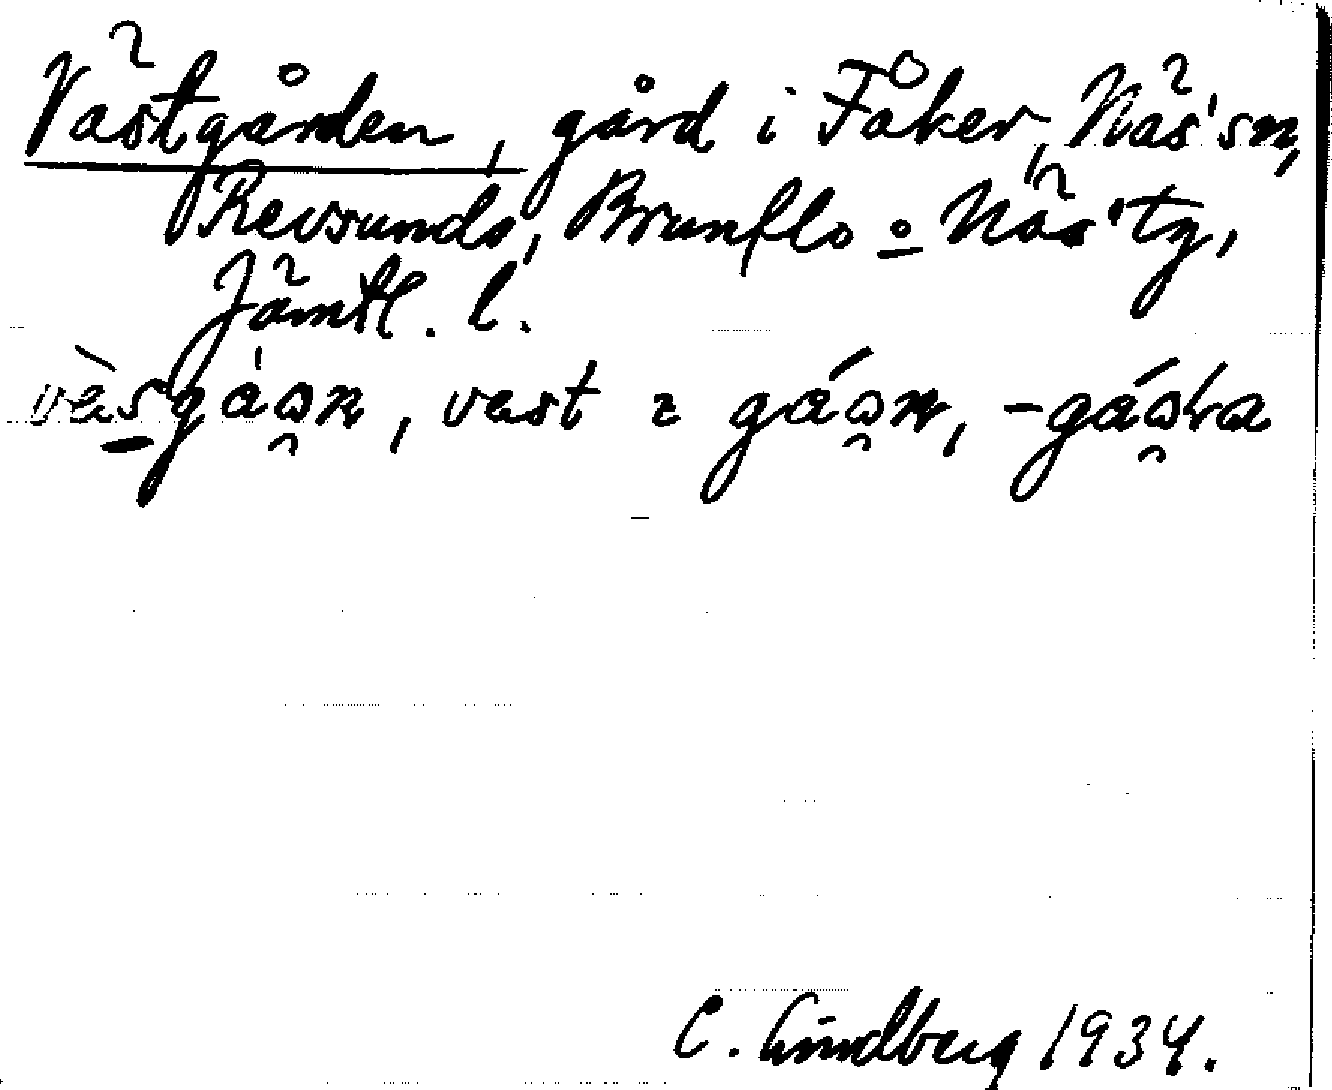 Västgården, gård i Fåker, Näs' sn,
Revsunds, Brunflo o Näs' tg,
Jämtl. l.
vast gáɷn,
C. Lindberg 1934.